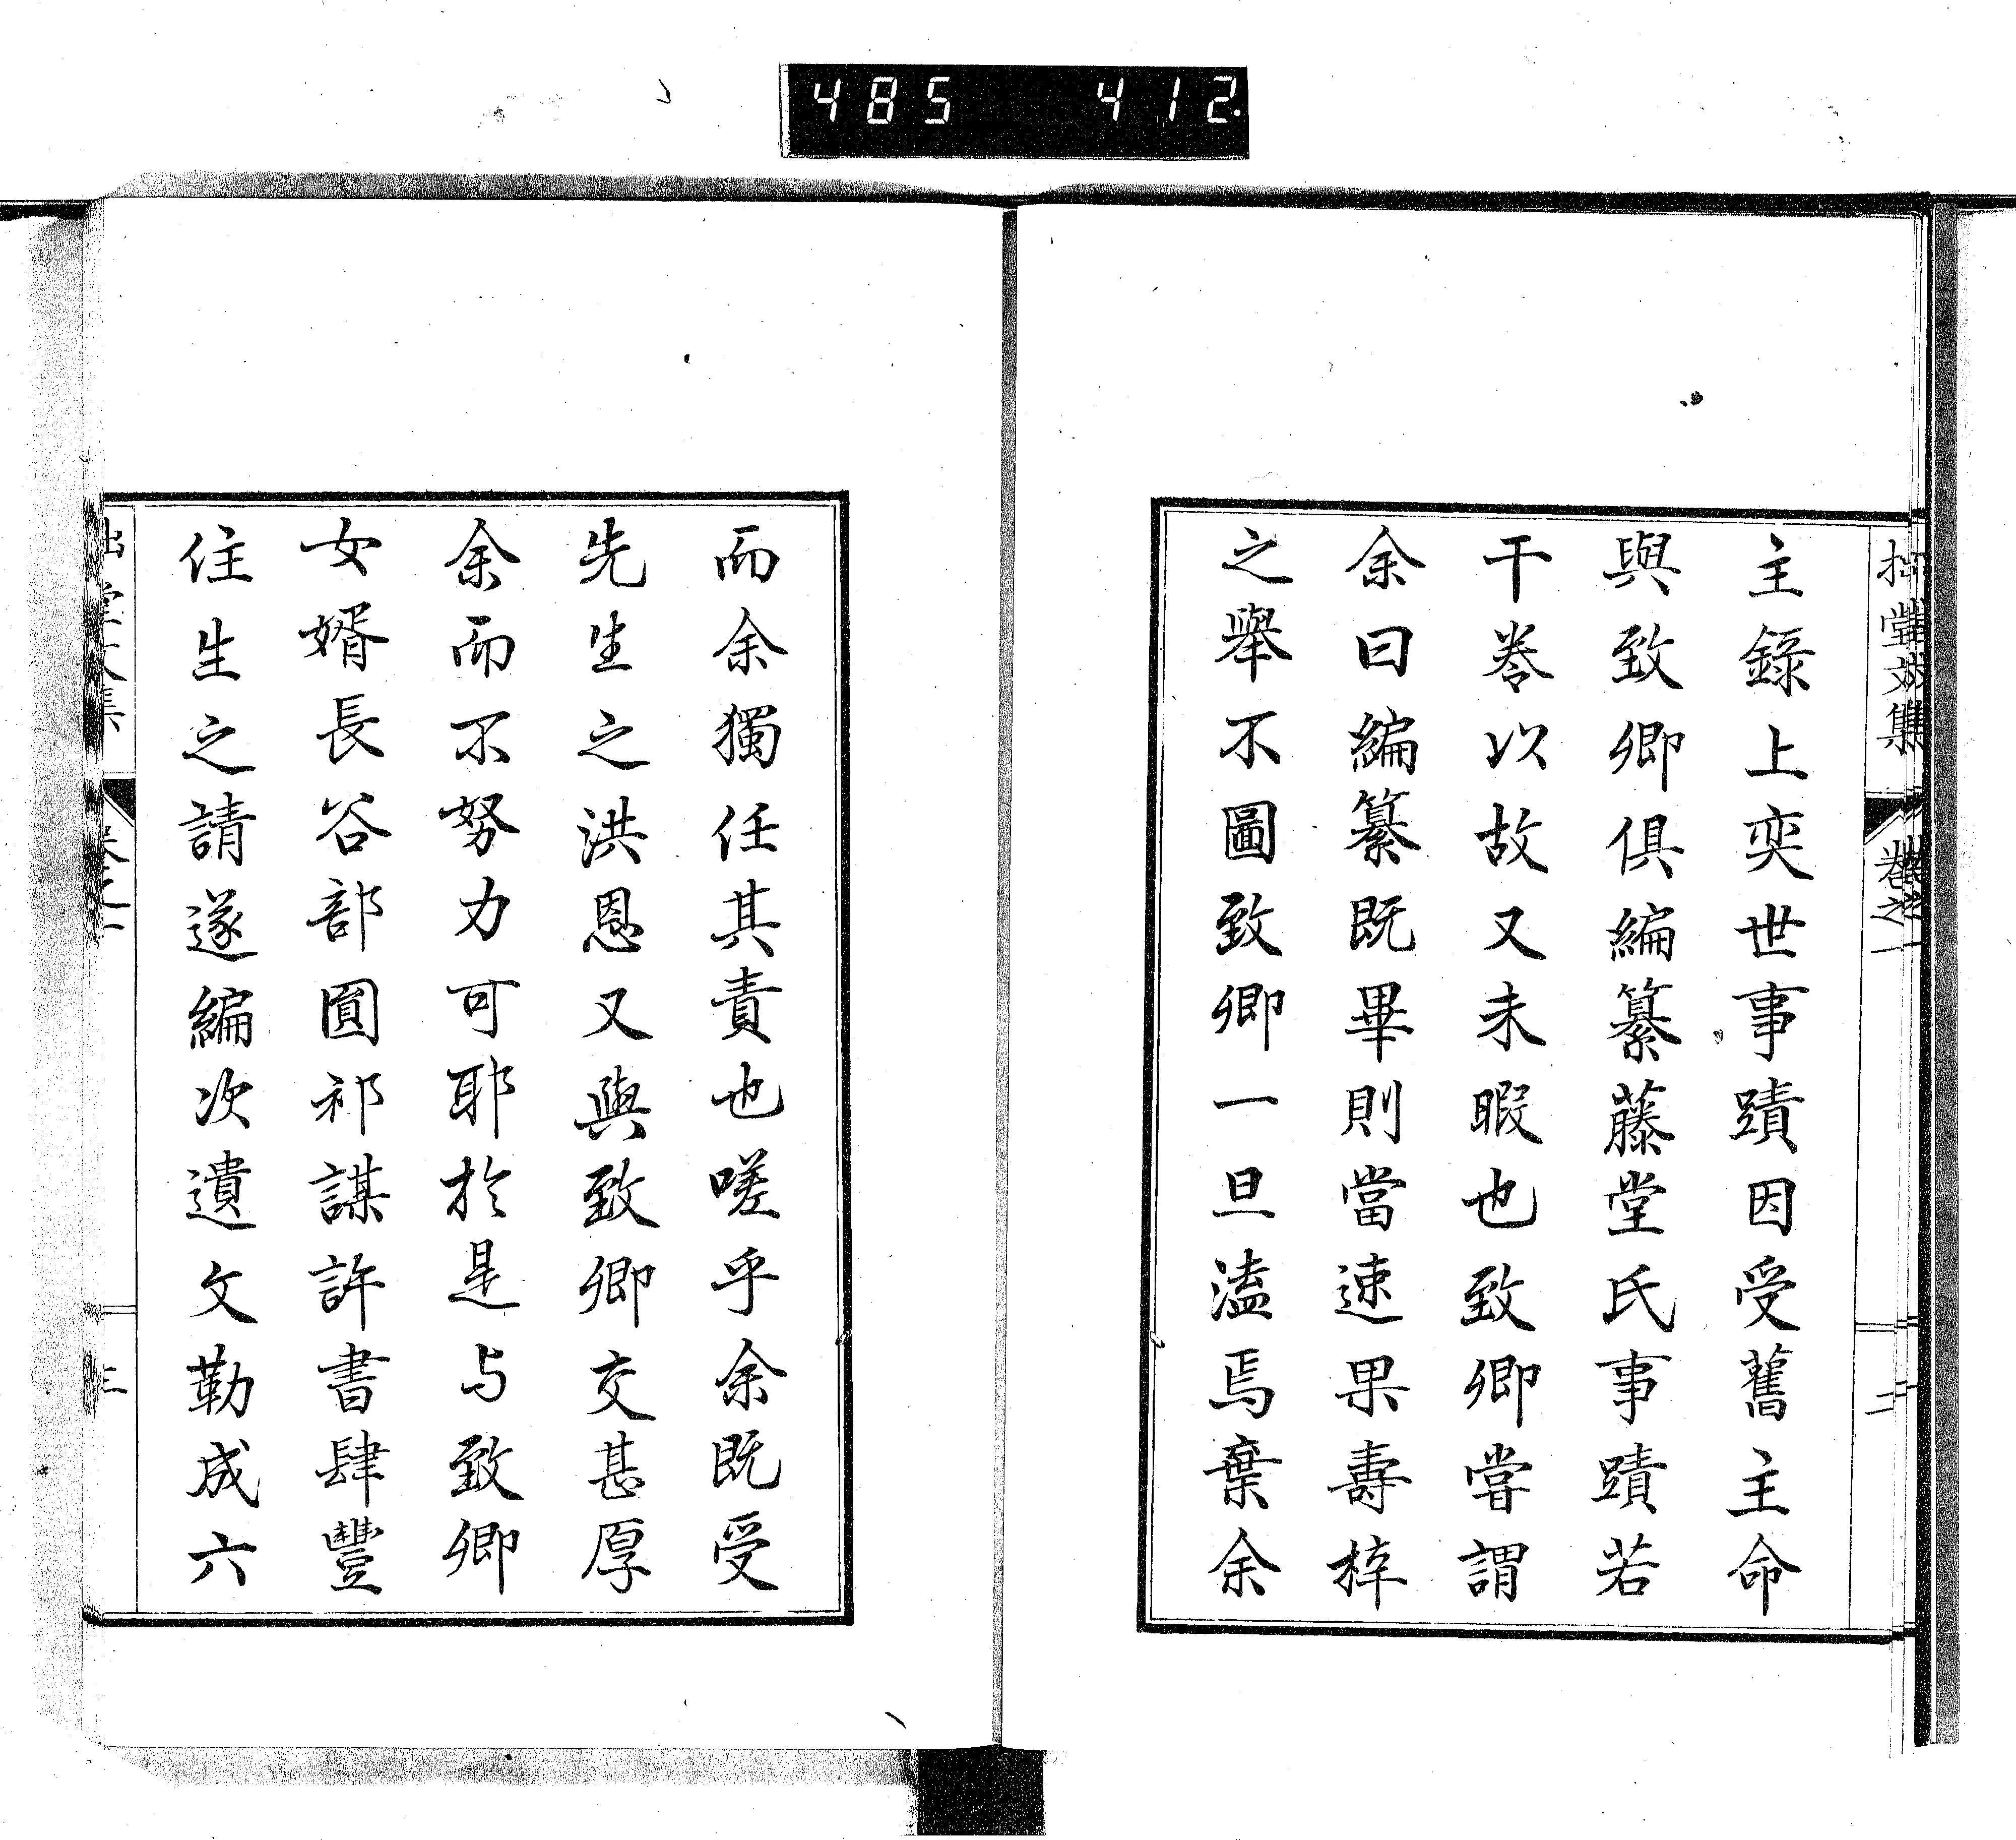 485 412.
拙堂文集 卷之一 二
主錄上奕世事蹟因受舊主命
與致卿俱編纂藤堂氏事蹟若
干卷以故又未暇也致卿嘗謂
余曰編纂既畢則當速果壽梓
之舉不圖致卿一旦溘焉棄余
而余獨任其責也嗟乎余既受
先生之洪恩又與致卿交甚厚
余而不努力可耶於是与致卿
女婿長谷部圓祁謀許書肆豐
住生之請遂編次遺文勒成六